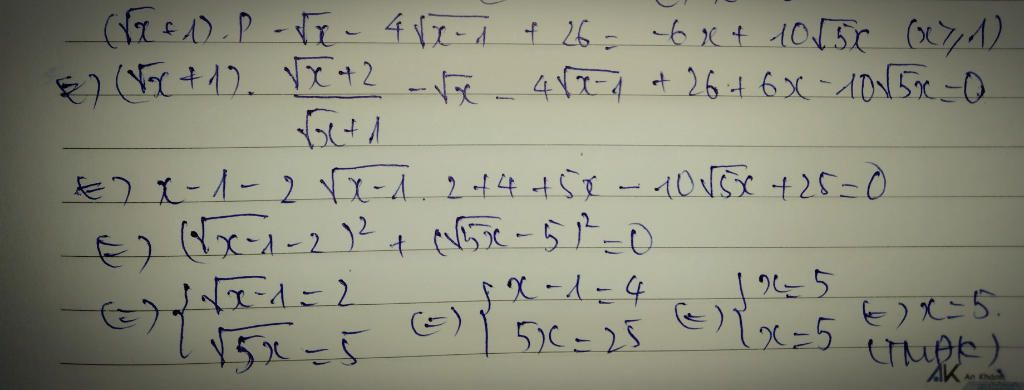 (√x + 1). P - √x - 4√(x-1) + 26 = -6x + 10√5x (x ≥ 1)
⇔ (√x + 1). (√x + 2)/(√x + 1) - √x - 4√(x-1) + 26 + 6x - 10√5x = 0
⇔ x - 1 - 2√(x-1). 2 + 4 + 5x - 10√5x + 25 = 0
⇔ (√(x-1) - 2)² + (√5x - 5)² = 0
⇔ { √(x-1) = 2 ; √5x = 5 ⇔ { x - 1 = 4 ; 5x = 25 ⇔ { x = 5 ; x = 5 ⇔ x = 5.
(TMĐK)
AK An Khánh